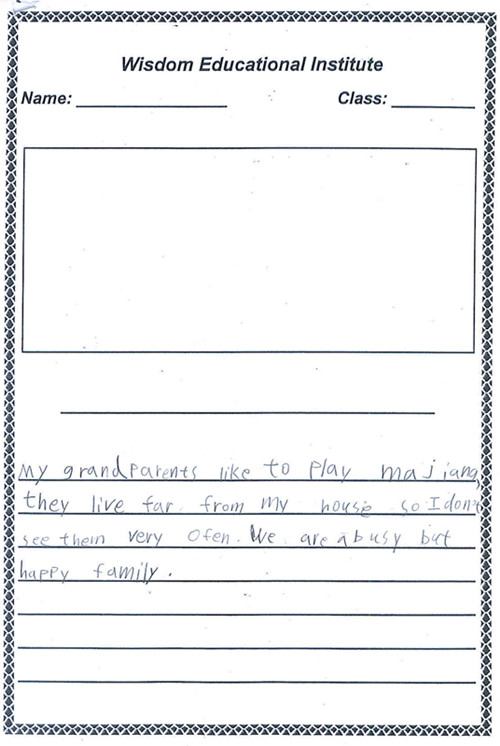 Wisdom Educational Institute
Name: Class:
My grandparents like to play majiang,
they live far from my house so I don't
see them very ofen. We are a busy but
happy family.